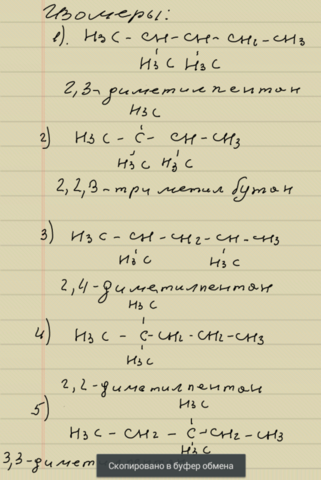 Изомеры:
1). H3C - CH - CH - CH2 - CH3
H3C H3C
2,3-диметилпентан
H3C
2) H3C - C - CH - CH3
H3C H3C
2,2,3-триметилбутан
3) H3C - CH - CH2 - CH - CH3
H3C H3C
2,4-диметилпентан
H3C
4) H3C - C - CH2 - CH2 - CH3
H3C
2,2-диметилпентан
5) H3C
H3C - CH2 - C - CH2 - CH3
H3C
3,3-диме
Скопировано в буфер обмена